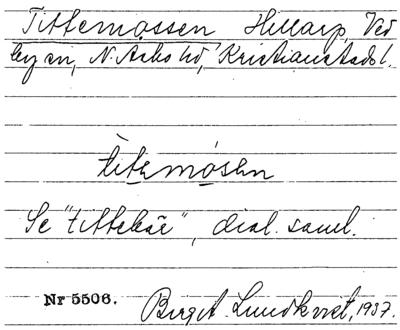 Tittemossen Hillarp, Ved
by sn, N. Åsbo hd, Kristianstads l.
títemósen
Se "tittebär", dial. saml.
Nr 5506.
Birgit Lundkvist, 1937.